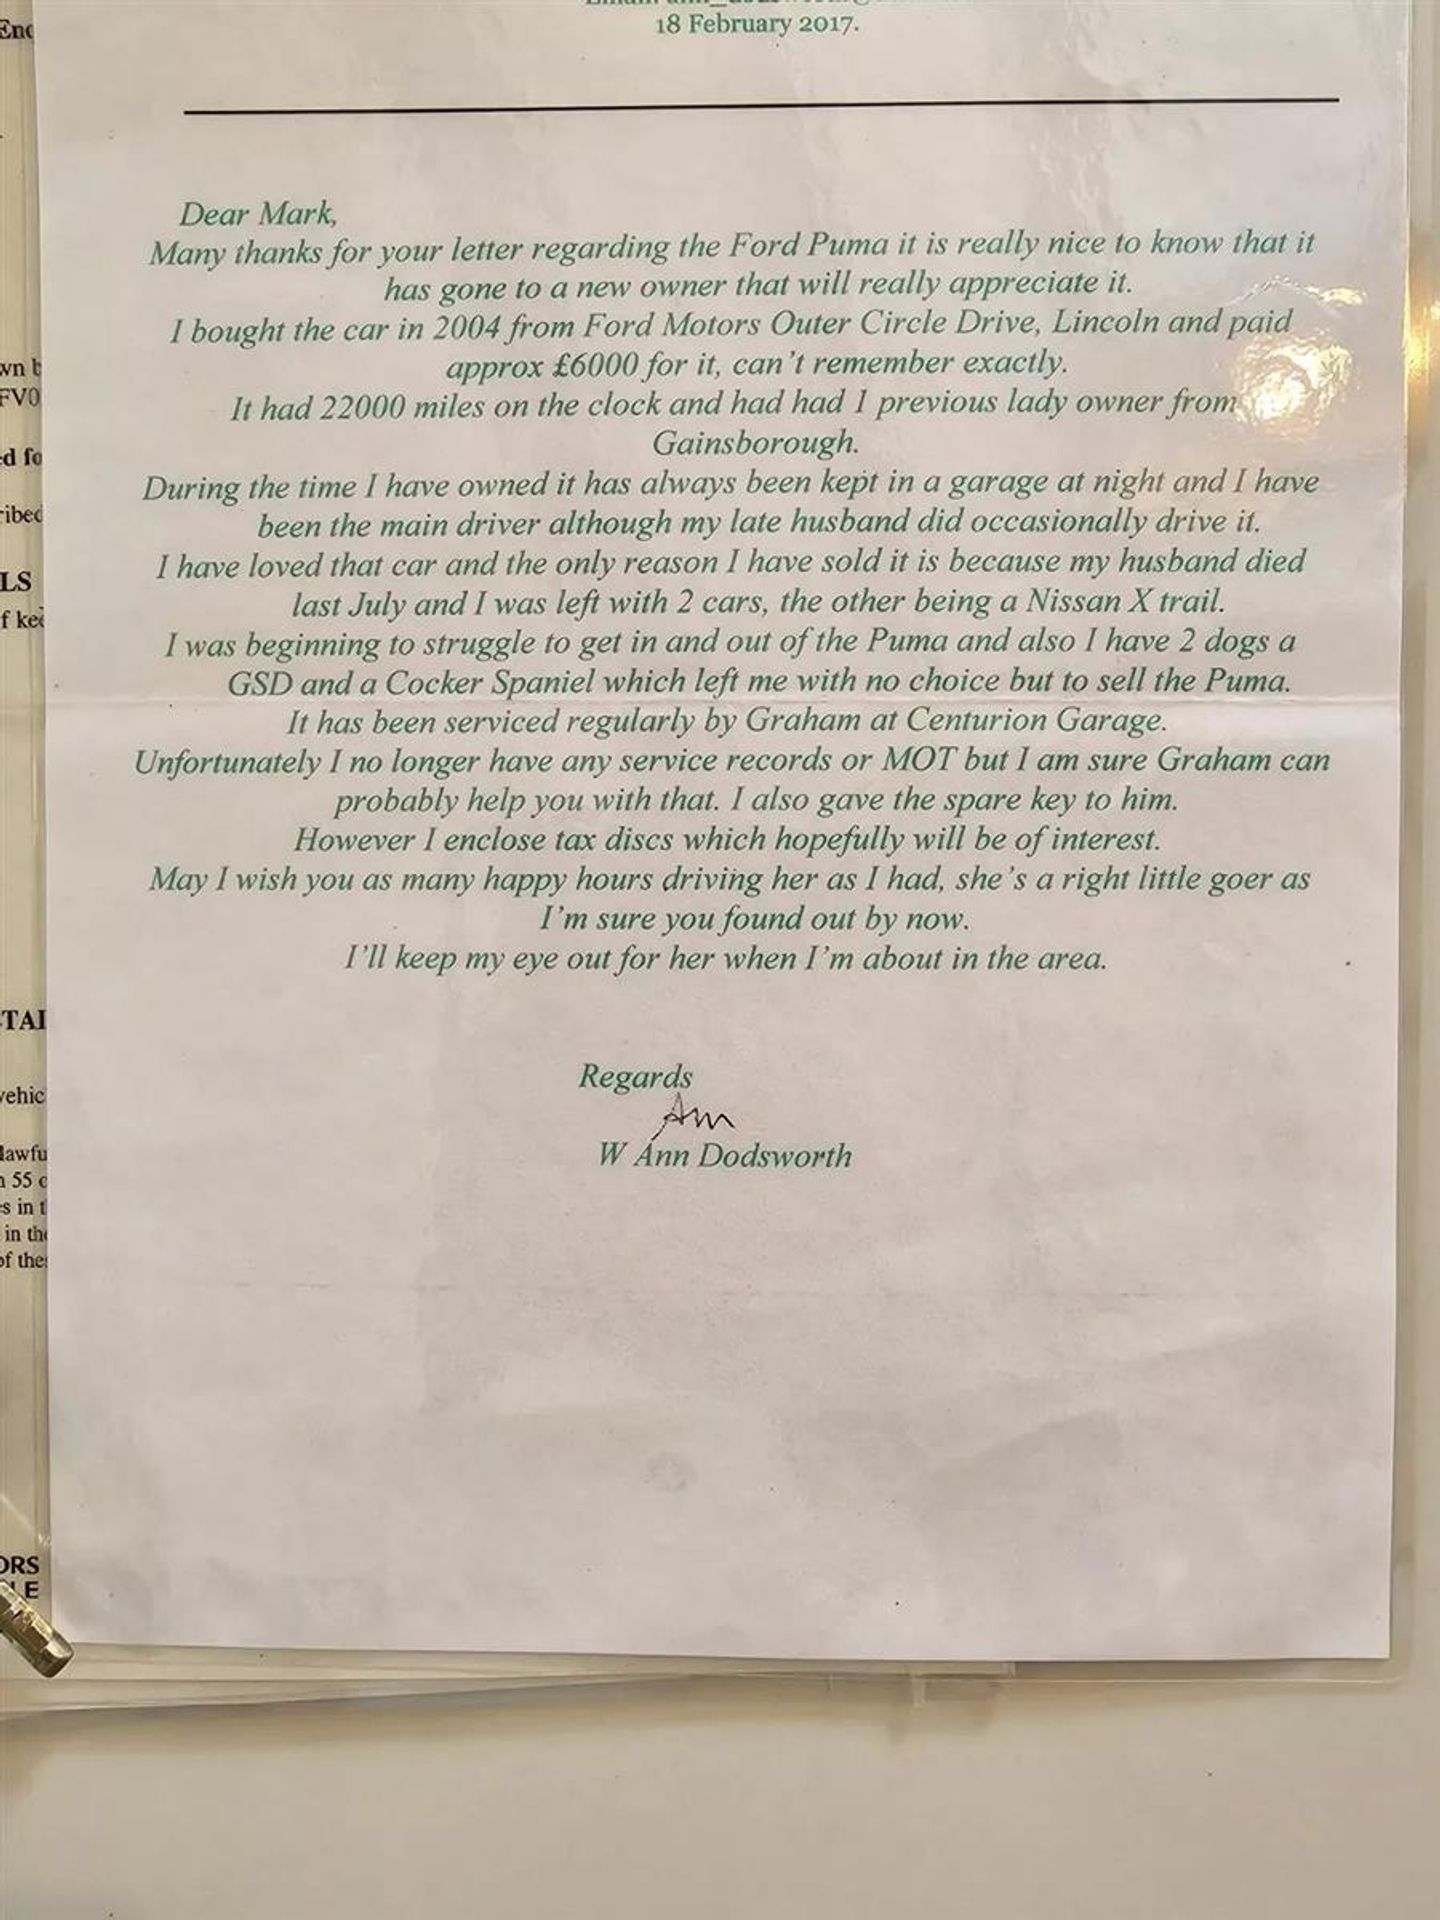 18 February 2017.
Dear Mark,
Many thanks for your letter regarding the Ford Puma it is really nice to know that it
has gone to a new owner that will really appreciate it.
I bought the car in 2004 from Ford Motors Outer Circle Drive, Lincoln and paid
approx £6000 for it, can't remember exactly.
It had 22000 miles on the clock and had had 1 previous lady owner from
Gainsborough.
During the time I have owned it has always been kept in a garage at night and I have
been the main driver although my late husband did occasionally drive it.
I have loved that car and the only reason I have sold it is because my husband died
last July and I was left with 2 cars, the other being a Nissan X trail.
I was beginning to struggle to get in and out of the Puma and also I have 2 dogs a
GSD and a Cocker Spaniel which left me with no choice but to sell the Puma.
It has been serviced regularly by Graham at Centurion Garage.
Unfortunately I no longer have any service records or MOT but I am sure Graham can
probably help you with that. I also gave the spare key to him.
However I enclose tax discs which hopefully will be of interest.
May I wish you as many happy hours driving her as I had, she's a right little goer as
I'm sure you found out by now.
I'll keep my eye out for her when I'm about in the area.
Regards
Ann
W Ann Dodsworth